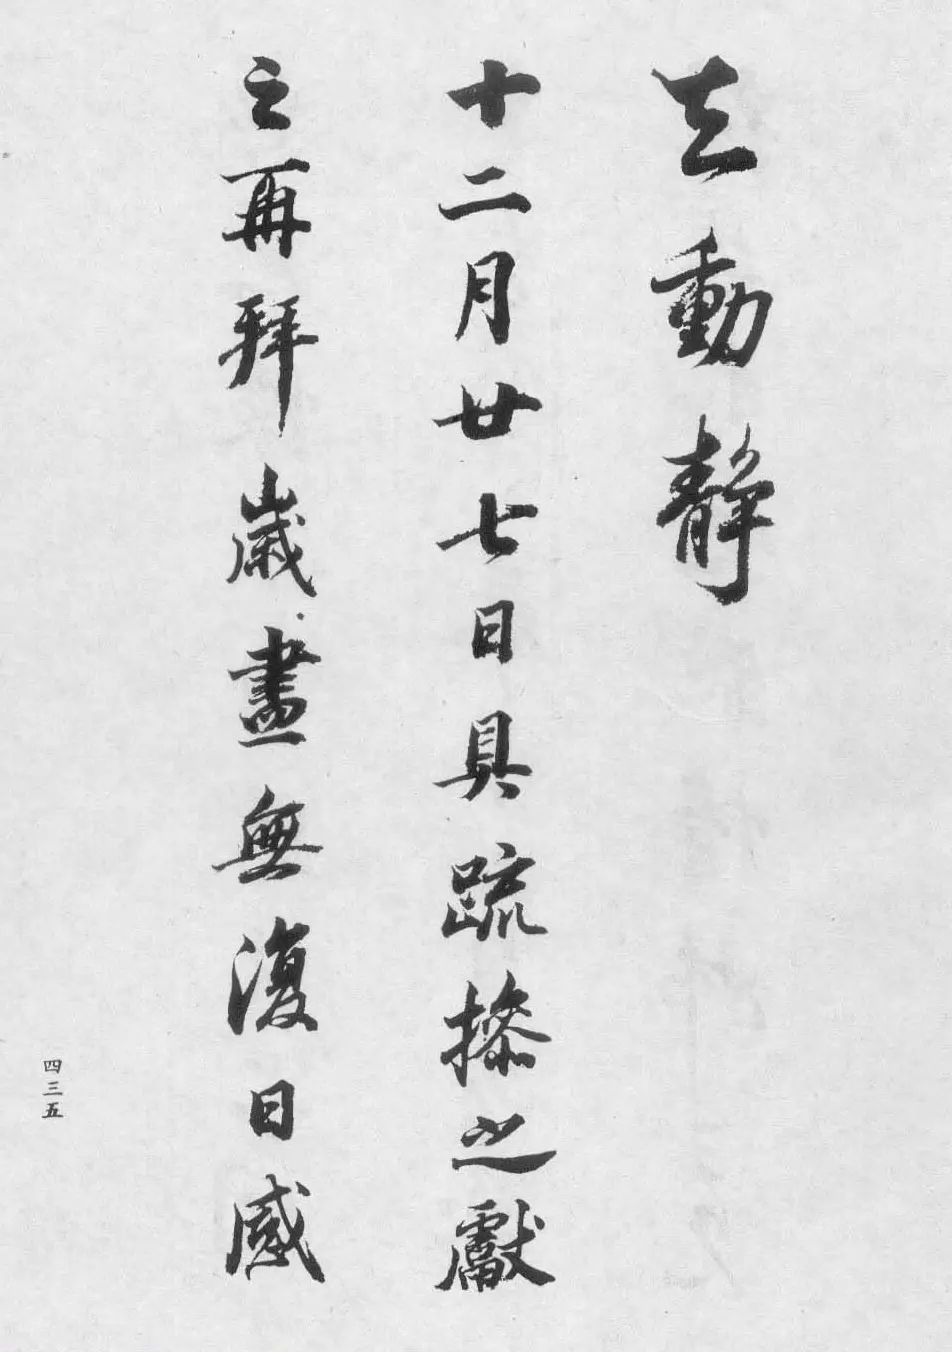 知動靜
十二月廿七日具疏操之獻
之再拜歲盡無復日感
四三五